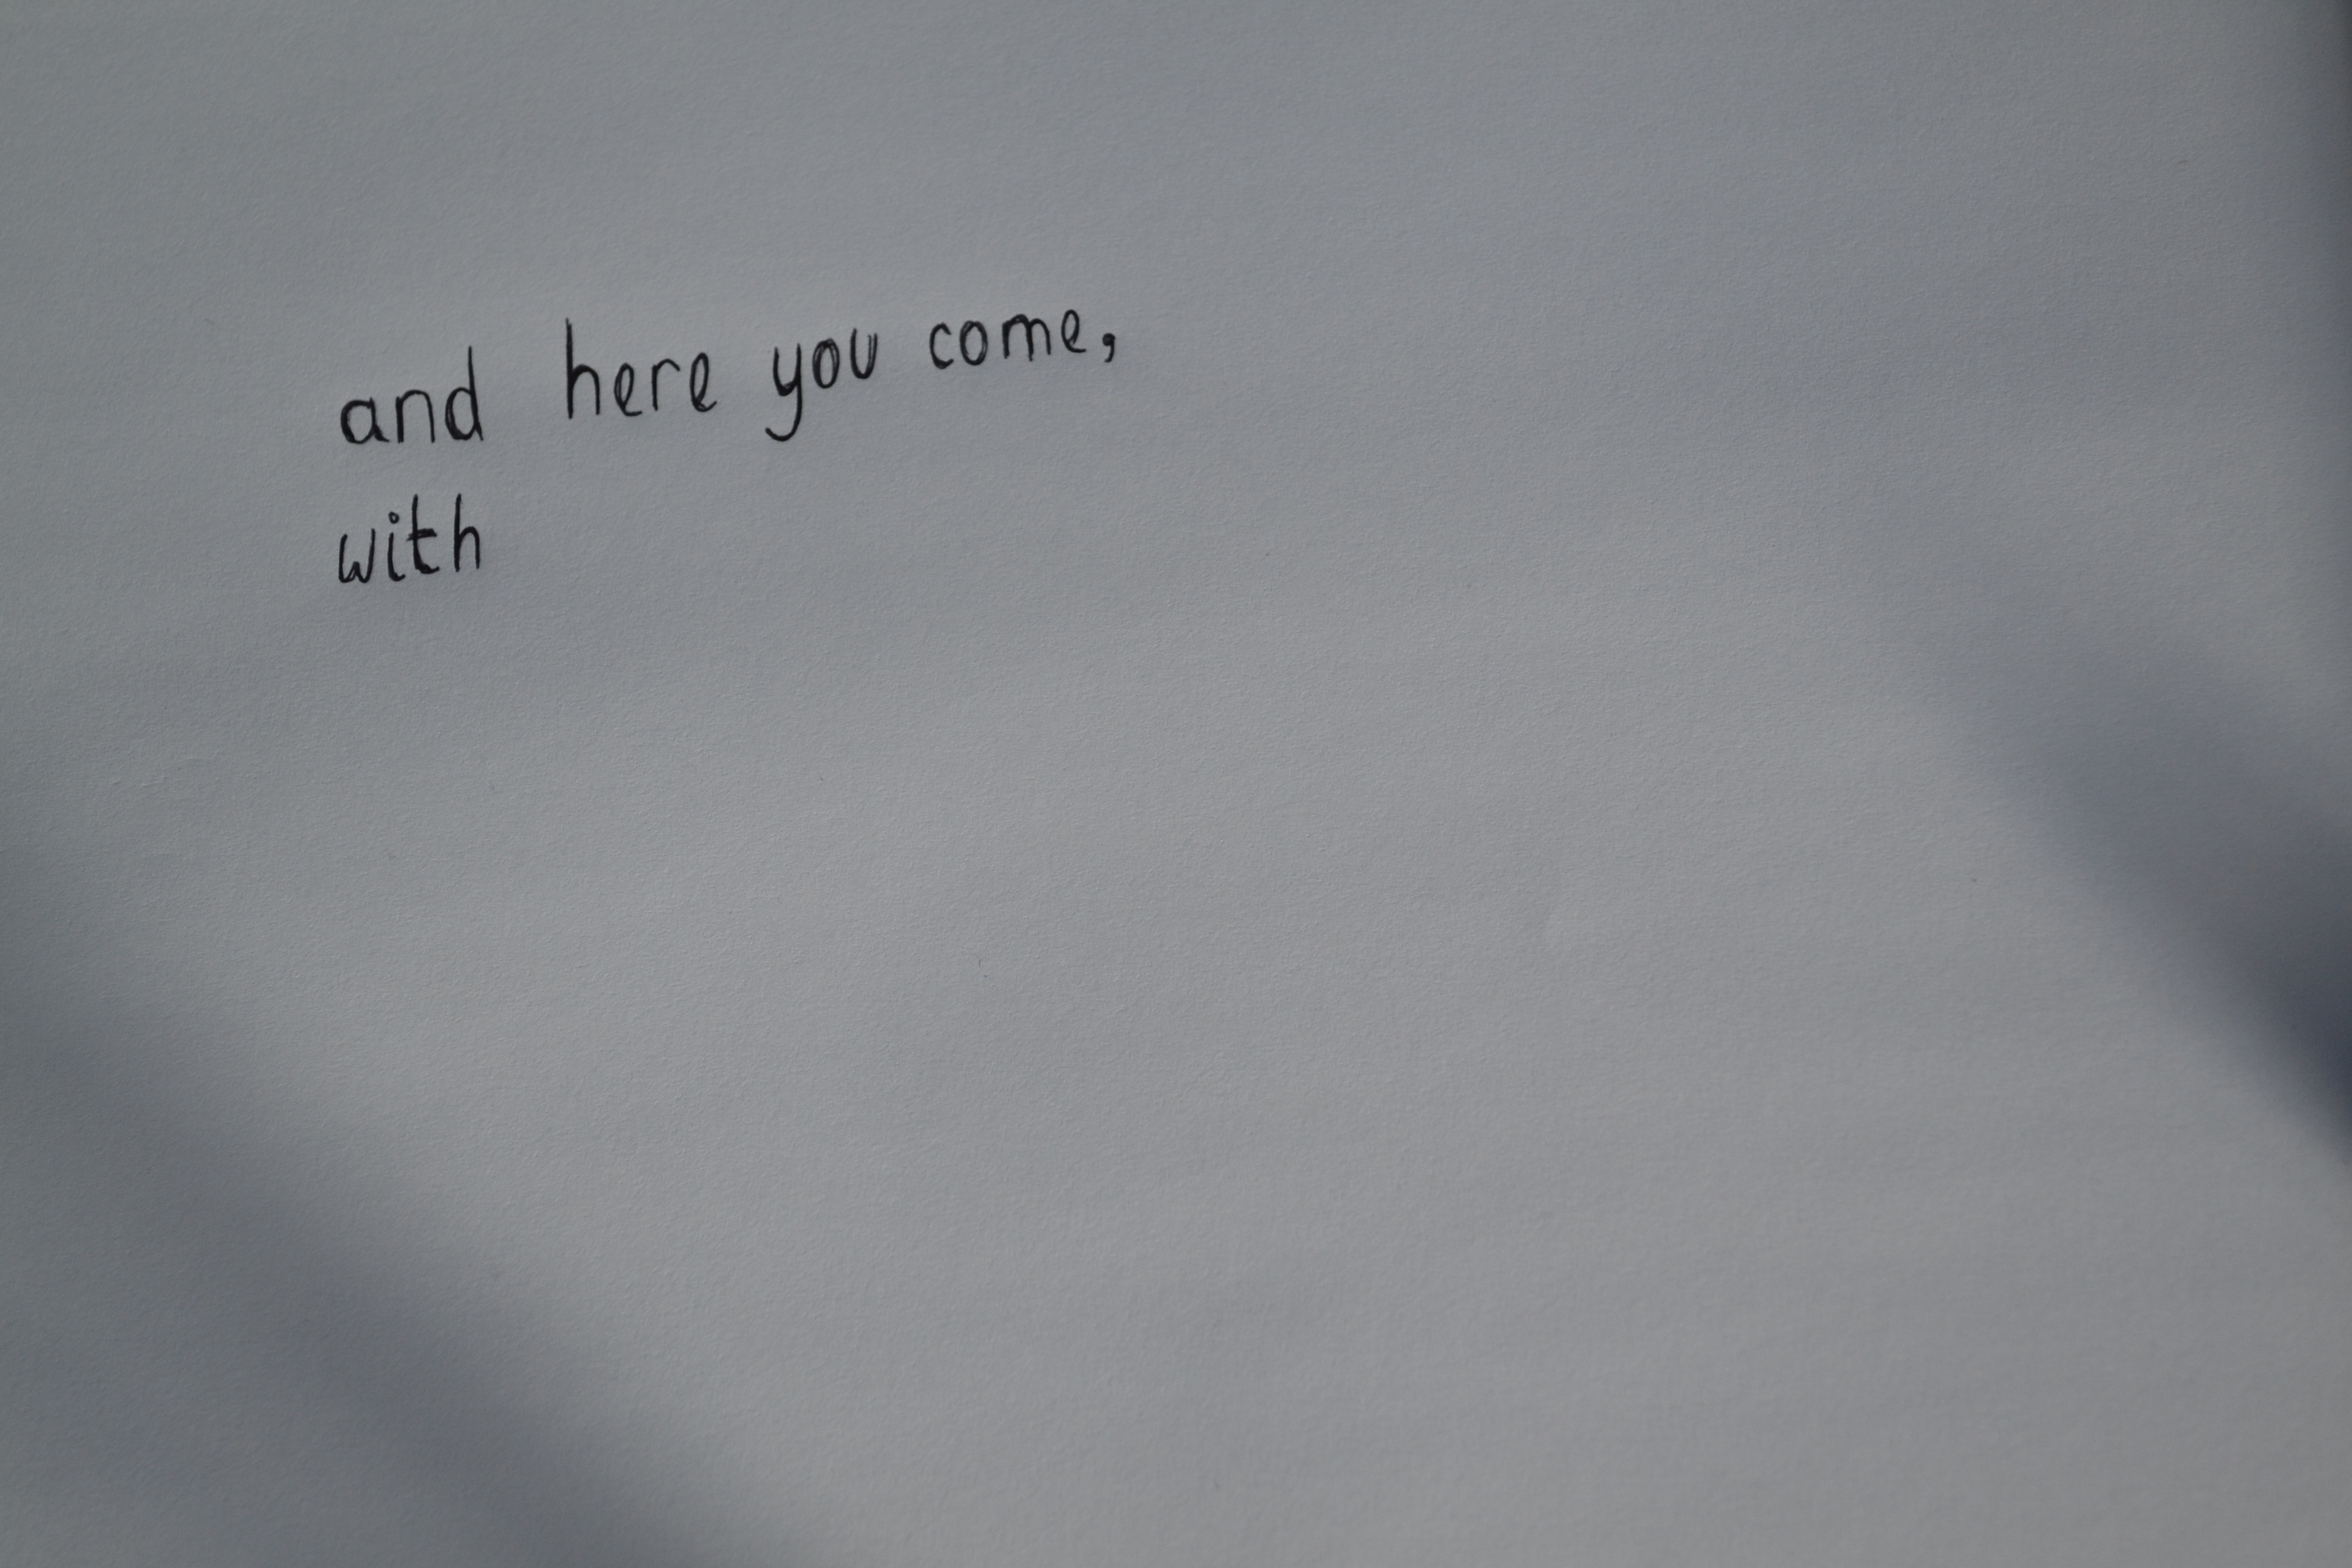 and here you come,
with